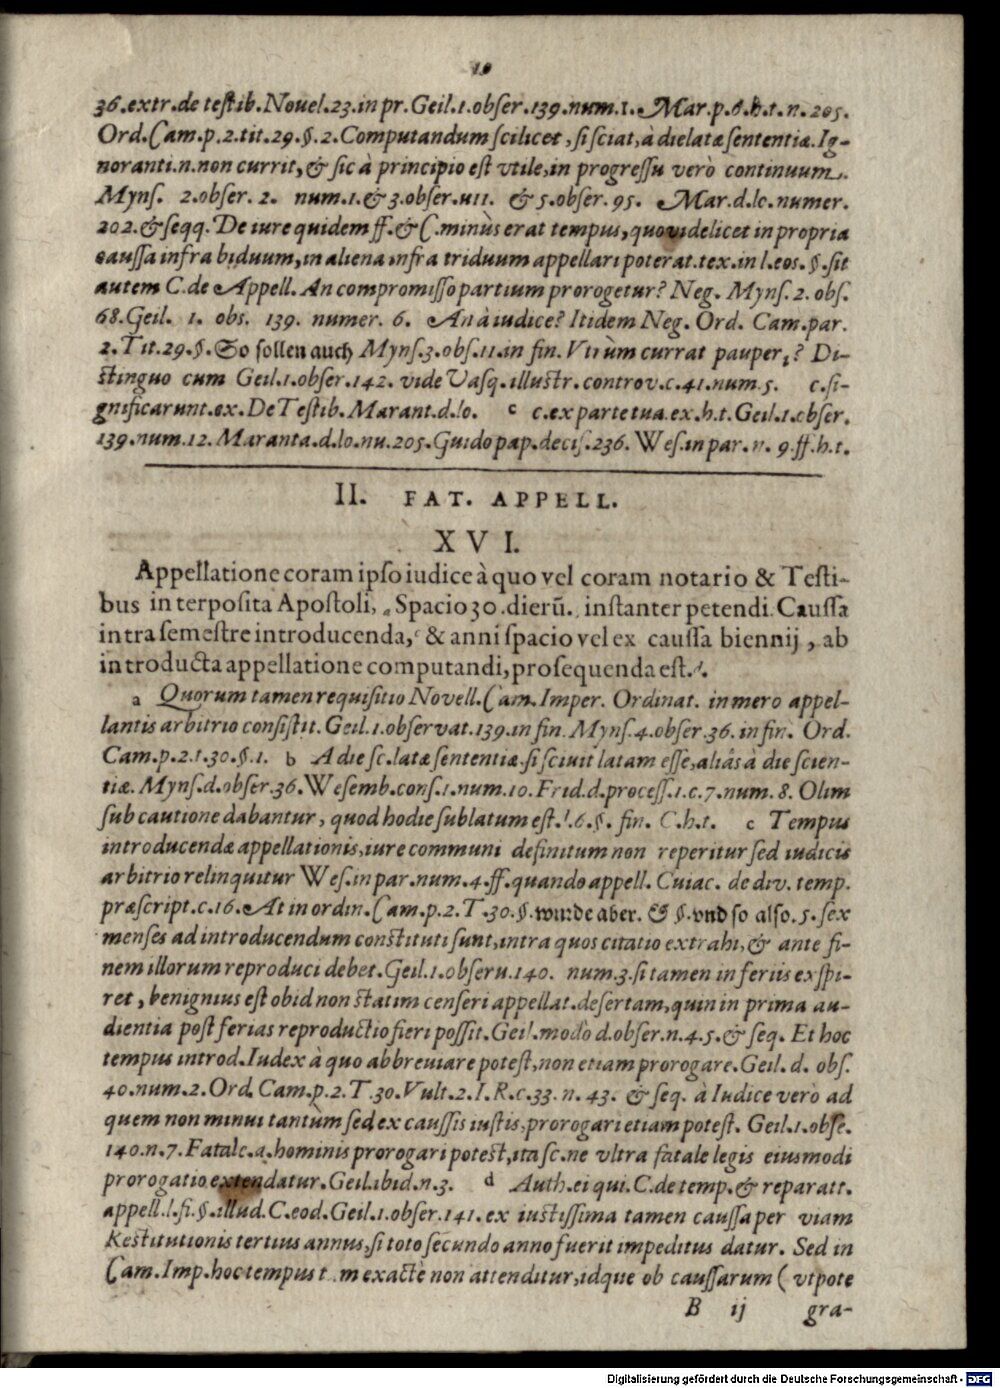 10
36.extr.de teſtib.Nouel.23.in pr.Geil.1.obſer.139.num.1.Mar.p.6.h.t.n.205.
Ord.Cam.p.2.tit.29.§.2.Computandum ſcilicet,ſi ſciat,à die latæ ſententiæ.Ig-
noranti.n.non currit,& ſic à principio eſt vtile,in progreſſu verò continuum.
Mynſ. 2.obſer. 2. num.1.& 3.obſer.uII. & 5.obſer.95. Mar.d.lc.numer.
202.& ſeqq.De iure quidem ff.& C.minùs erat tempus,quo videlicet in propria
cauſſa infra biduum,in aliena infra triduum appellari poterat.tex.in l.eos.§.ſit
autem C.de Appell.An compromiſſo partium prorogetur? Neg. Mynſ.2.obſ.
68.Geil. 1. obſ. 139. numer. 6. An à iudice? Itidem Neg. Ord. Cam.par.
2.Tit.29.§.So ſollen auch Mynſ.3.obſ.11.in fin.Vtrùm currat pauperi? Di-
ſtinguo cum Geil.1.obſer.142. vide Vaſq.illuſtr.controv.c.41.num.5. c.ſi-
gnificarunt.ex.De Teſtib.Marant.d.lo. c c.ex parte tua.ex.h.t.Geil.1.obſer.
139.num.12.Maranta.d.lo.nu.205.Guido pap.deciſ.236.Weſ.in par.n. 9.ff.h.t.
II. FAT. APPELL.
XVI.
Appellatione coram ipſo iudice à quo vel coram notario & Teſti-
bus interpoſita Apoſtoli, a Spacio 30.dierũ. inſtanter petendi.Cauſſa
intra ſemeſtre introducenda,c & anni ſpacio vel ex cauſſa biennij, ab
introducta appellatione computandi,proſequenda eſt.d.
a Quorum tamen requiſitio Novell.Cam.Imper. Ordinat. in mero appel-
lantis arbitrio conſiſtit.Geil.1.obſervat.139.in fin.Mynſ.4.obſer.36.in fin. Ord.
Cam.p.2.t.30.§.1. b A die ſc.latæ ſententiæ.ſi ſciuit latam eſſe,aliâs à die ſcien-
tiæ.Mynſ.d.obſer.36.Weſemb.conſ.1.num.10.Frid.d.proceſſ.1.c.7.num.8. Olim
ſub cautione dabantur, quod hodie ſublatum eſt.l.6.§. fin. C.h.t. c Tempus
introducendæ appellationis,iure communi definitum non reperitur ſed iudicis
arbitrio relinquitur Weſ.in par.num.4.ff.quando appell. Cuiac. de div. temp.
præſcript.c.16.At in ordin.Cam.p.2.T.30.§.wurde aber. & §.vnd ſo alſo.5.ſex
menſes ad introducendum conſtituti ſunt,intra quos citatio extrahi,& ante fi-
nem illorum reproduci debet.Geil.1.obſeru.140. num.3.ſi tamen in feriis exſpi-
ret, benignius eſt ob id non ſtatim cenſeri appellat.deſertam,quin in prima au-
dientia poſt ferias reproductio fieri poſſit.Geil.modo d.obſer.n.4.5.& ſeq. Et hoc
tempus introd.Iudex à quo abbreuiare poteſt,non etiam prorogare.Geil.d. obſ.
40.num.2.Ord.Cam.p.2.T.30.Vult.2.I.R.c.33.n.43. & ſeq. à Iudice verò ad
quem non minui tantùm ſed ex cauſſis iuſtis,prorogari etiam poteſt. Geil.1.obſe.
140.n.7.Fatale.a.hominis prorogari poteſt,ita ſc.ne vltra fatale legis eiusmodi
prorogatio extendatur.Geil.ibid.n.3. d Auth.ei qui.C.de temp.& reparatt.
appell.l.fi.§.illud.C.eod.Geil.1.obſer.141.ex iuſtiſſima tamen cauſſa per viam
Reſtitutionis tertius annus,ſi toto ſecundo anno fuerit impeditus datur. Sed in
Cam.Imp.hoc tempus tam exactè non attenditur,idque ob cauſſarum (vtpote
B ij gra-
Digitalisierung gefördert durch die Deutsche Forschungsgemeinschaft - DFG